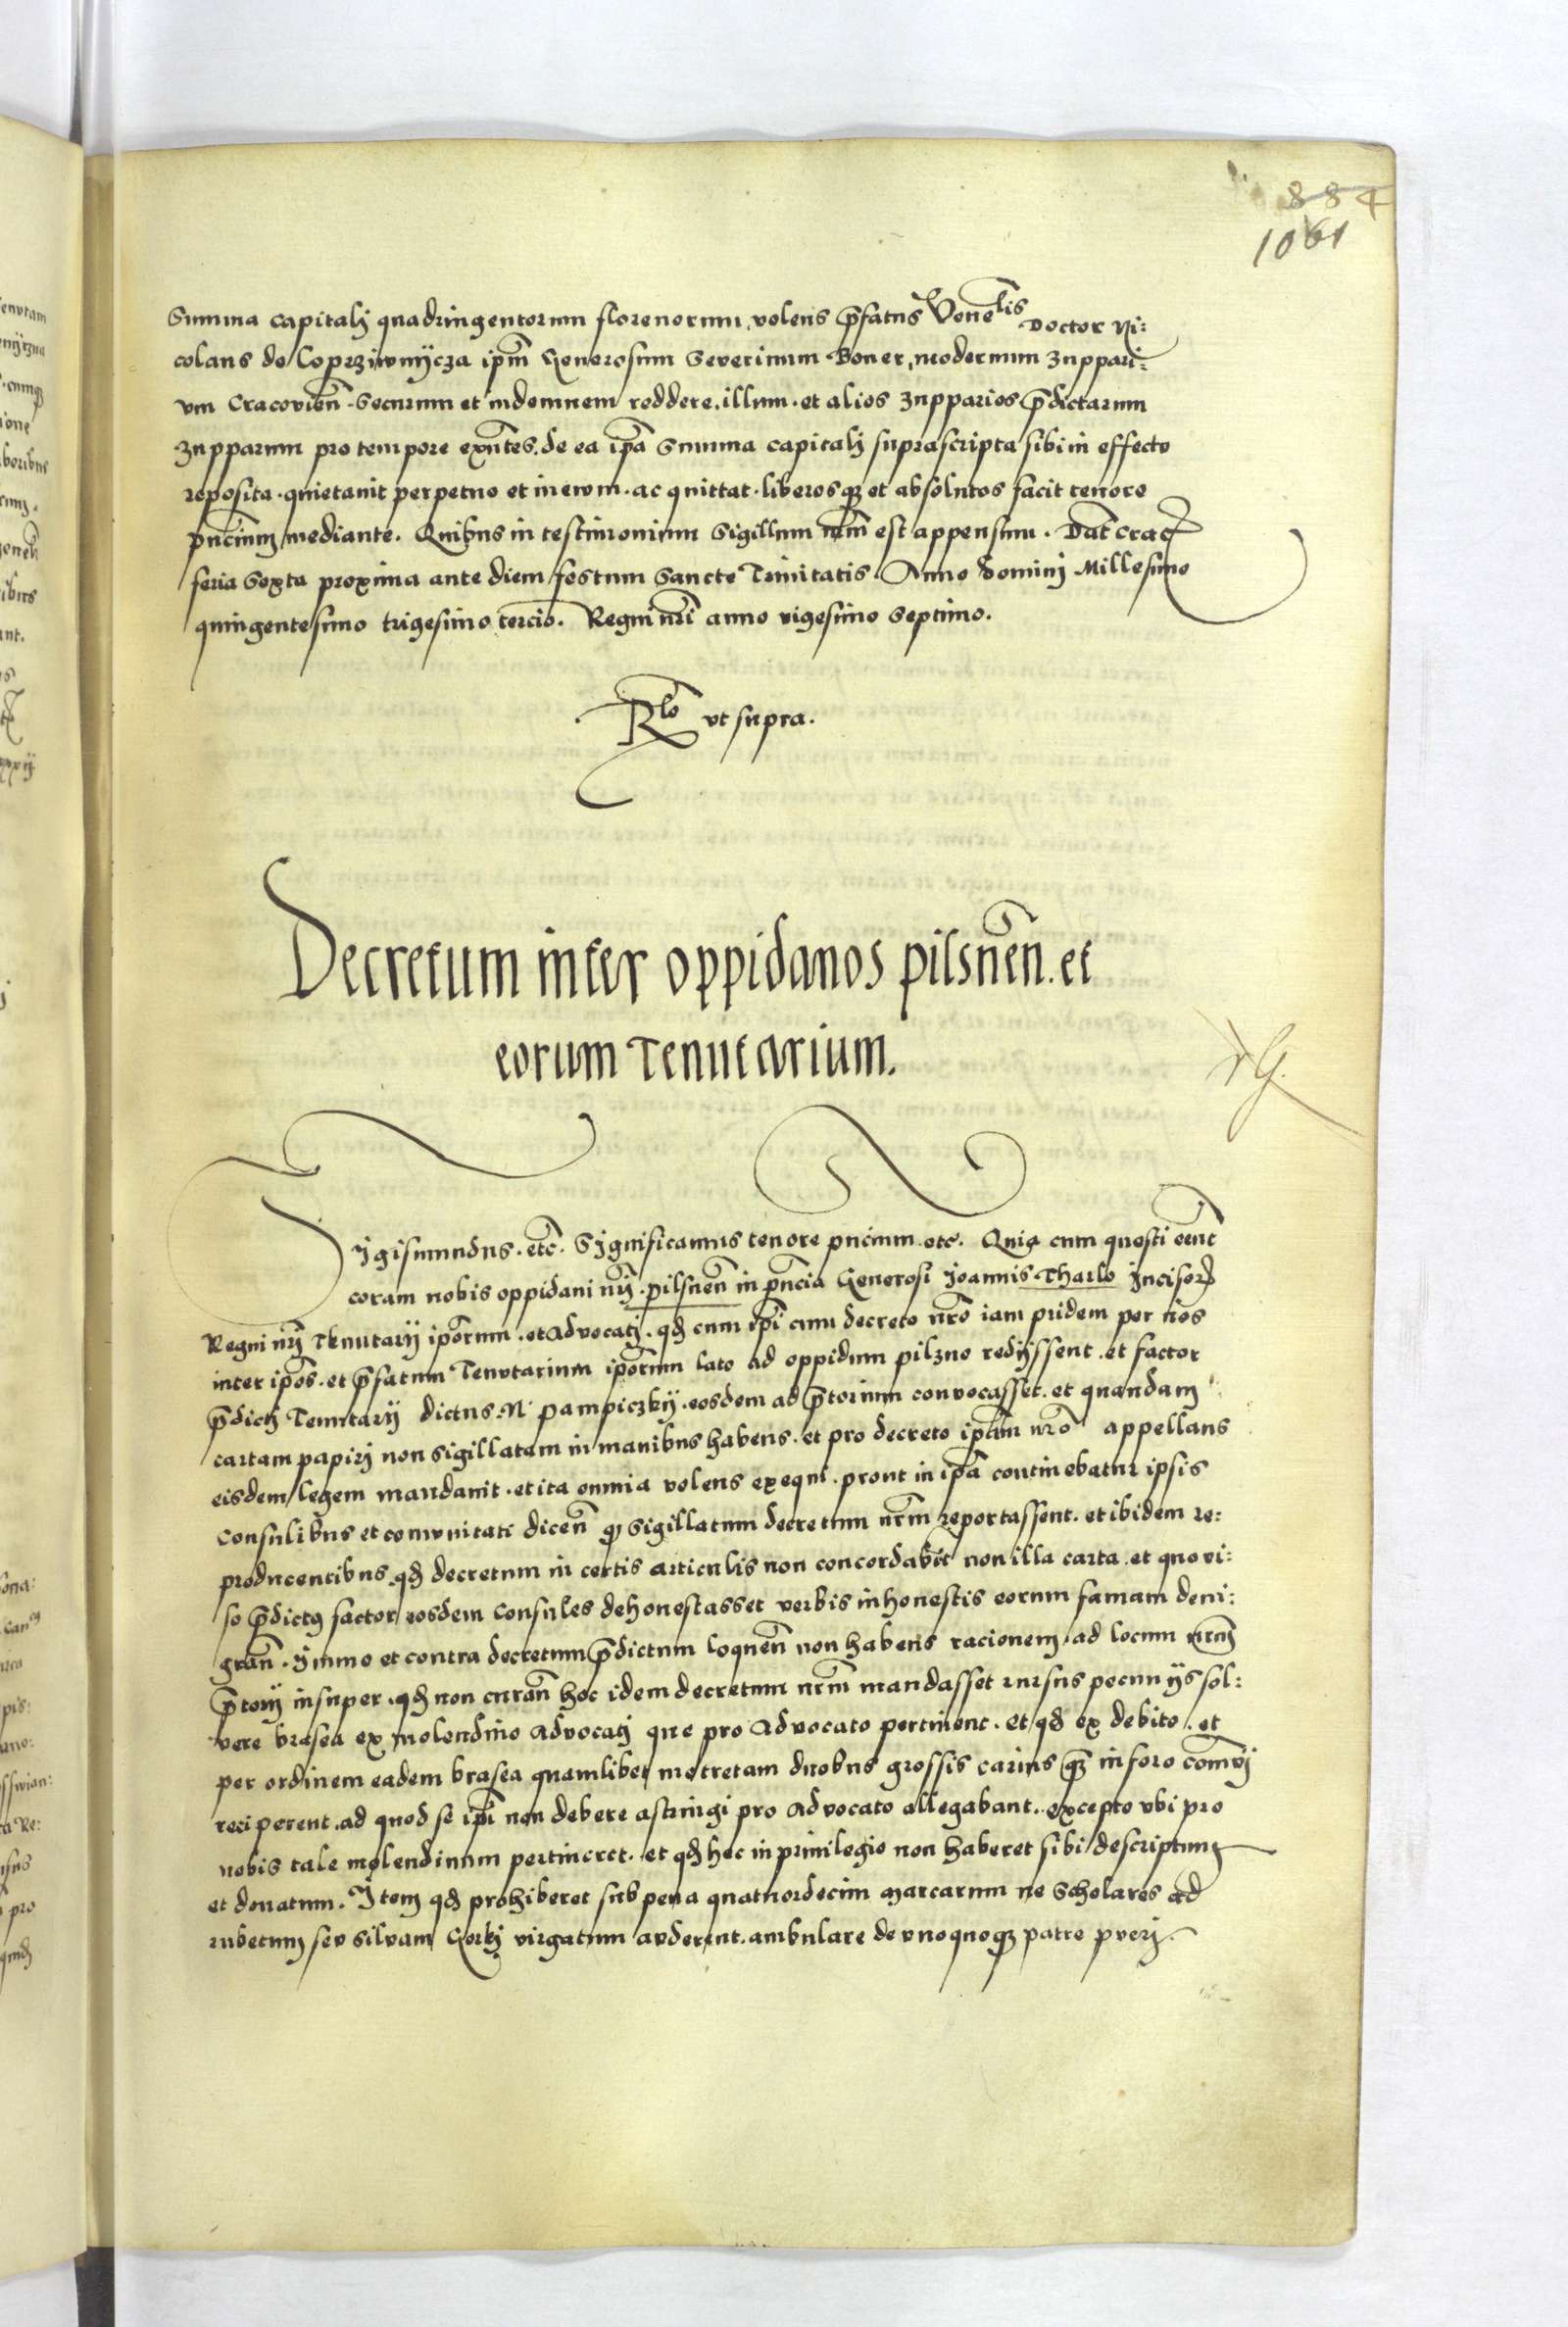 884
1061
Summa capitalj quadringentorum florenorum, volens p̄fatus Venelis Doctor Ni:
colaus de Coprziwnÿcza ipm̄ Generosum Severinum Boner, modernum Zuppari:
um Cracovien̄. Securum et indemnem reddere. illum. et alios Zupparios p̄dictarum
Zupparum pro tempore exn̄tes. de ea ip̄a Summa capitalj suprascripta sibi in effectu
reposita. quietavit perpetuo et in ewm. ac quittat. liberosq3 et absolutos facit tenore
pn̄cium mediante. Quibus in testimonium Sigillum nr̄m est appensum. Dat̄ Crac̄
feria Sexta proxima ante diem festum Sancte Trinitatis. Anno dominj Millesimo
quingentesimo trigesimo tercio. Regni nr̄i anno vigesimo Septimo.
Rlo vt supra.
Decretum inter oppidanos pilsnen̄. et
eorum Tenutarium.
Sigismundus. etc̄. Significamus tenore pn̄cium. etc. Quia cum questi een̄t
coram nobis oppidani nr̄ÿ. pilsnen̄ in pn̄cia Generosi Joannis Tharlo Incisor̄
Regni nr̄ÿ Tenutarÿ ipōrum. et Advocatj. qd̄ cum ip̄i cum decreto nr̄o iam pridem per nos
inter ipōs. et p̄fatum Tenutarium ipōrum lato ad oppidum pilzno redÿssent. et factor
p̄dictj Tenutarÿ dictus. N. Pampiczkÿ. eosdem ad p̄torium convocasset. et quandam
cartam papirj non sigillatam in manibus habens. et pro decreto ip̄am nr̄o appellans
eisdem legem mandavit. et ita omnia volens exequi. prout in ip̄a continebatur ipsis
Consulibus et comunitati dicen̄ q Sigillatum decretum nr̄m reportassent. et ibidem re:
producentibus. qd̄ decretum in certis articulis non concordabit̄ non illa carta. et quo vi:
so p̄dictus factor eosdem Consules dehonestasset verbis inhonestis eorum famam deni:
gran̄. Jmmo et contra decretum p̄dictum loquen̄ non habens racionem. ad locum nr̄m
p̄torÿ insuper. qd̄ non curan̄ hoc idem decretum nr̄m mandasset rursus pecunÿs sol:
vere brasea ex molendino advocatj que pro Advocato pertinent. et qd̄ ex debito. et
per ordinem eadem brasea quamlibet metretam duobus grossis carius q3 in foro comv̄j
reciperent. ad quod se ip̄i non debere astringi pro advocato allegabant. excepto vbi pro
nobis tale molendinum pertineret. et qd̄ hec in privilegio non haberet sibi descriptum
et donatum. Item qd̄ prohiberet sub pena quatuordecim marcarum ne Scholares ad
rubetum sev silvam Gorkj virgatum auderent. ambulare de vnoquoq3 patre pverj.